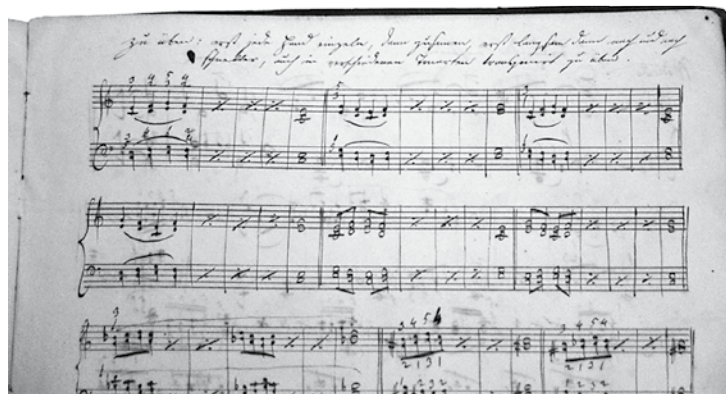 zu üben: erst jede Hand einzeln, dann zusammen, erst langsam dann nach und nach
schneller, auch in verschiedenen Tonarten transponiert zu üben.
3 4 5 4 5
3
3 4 5 4
2 1 3 1
3 4 5 4
2 1 3 1